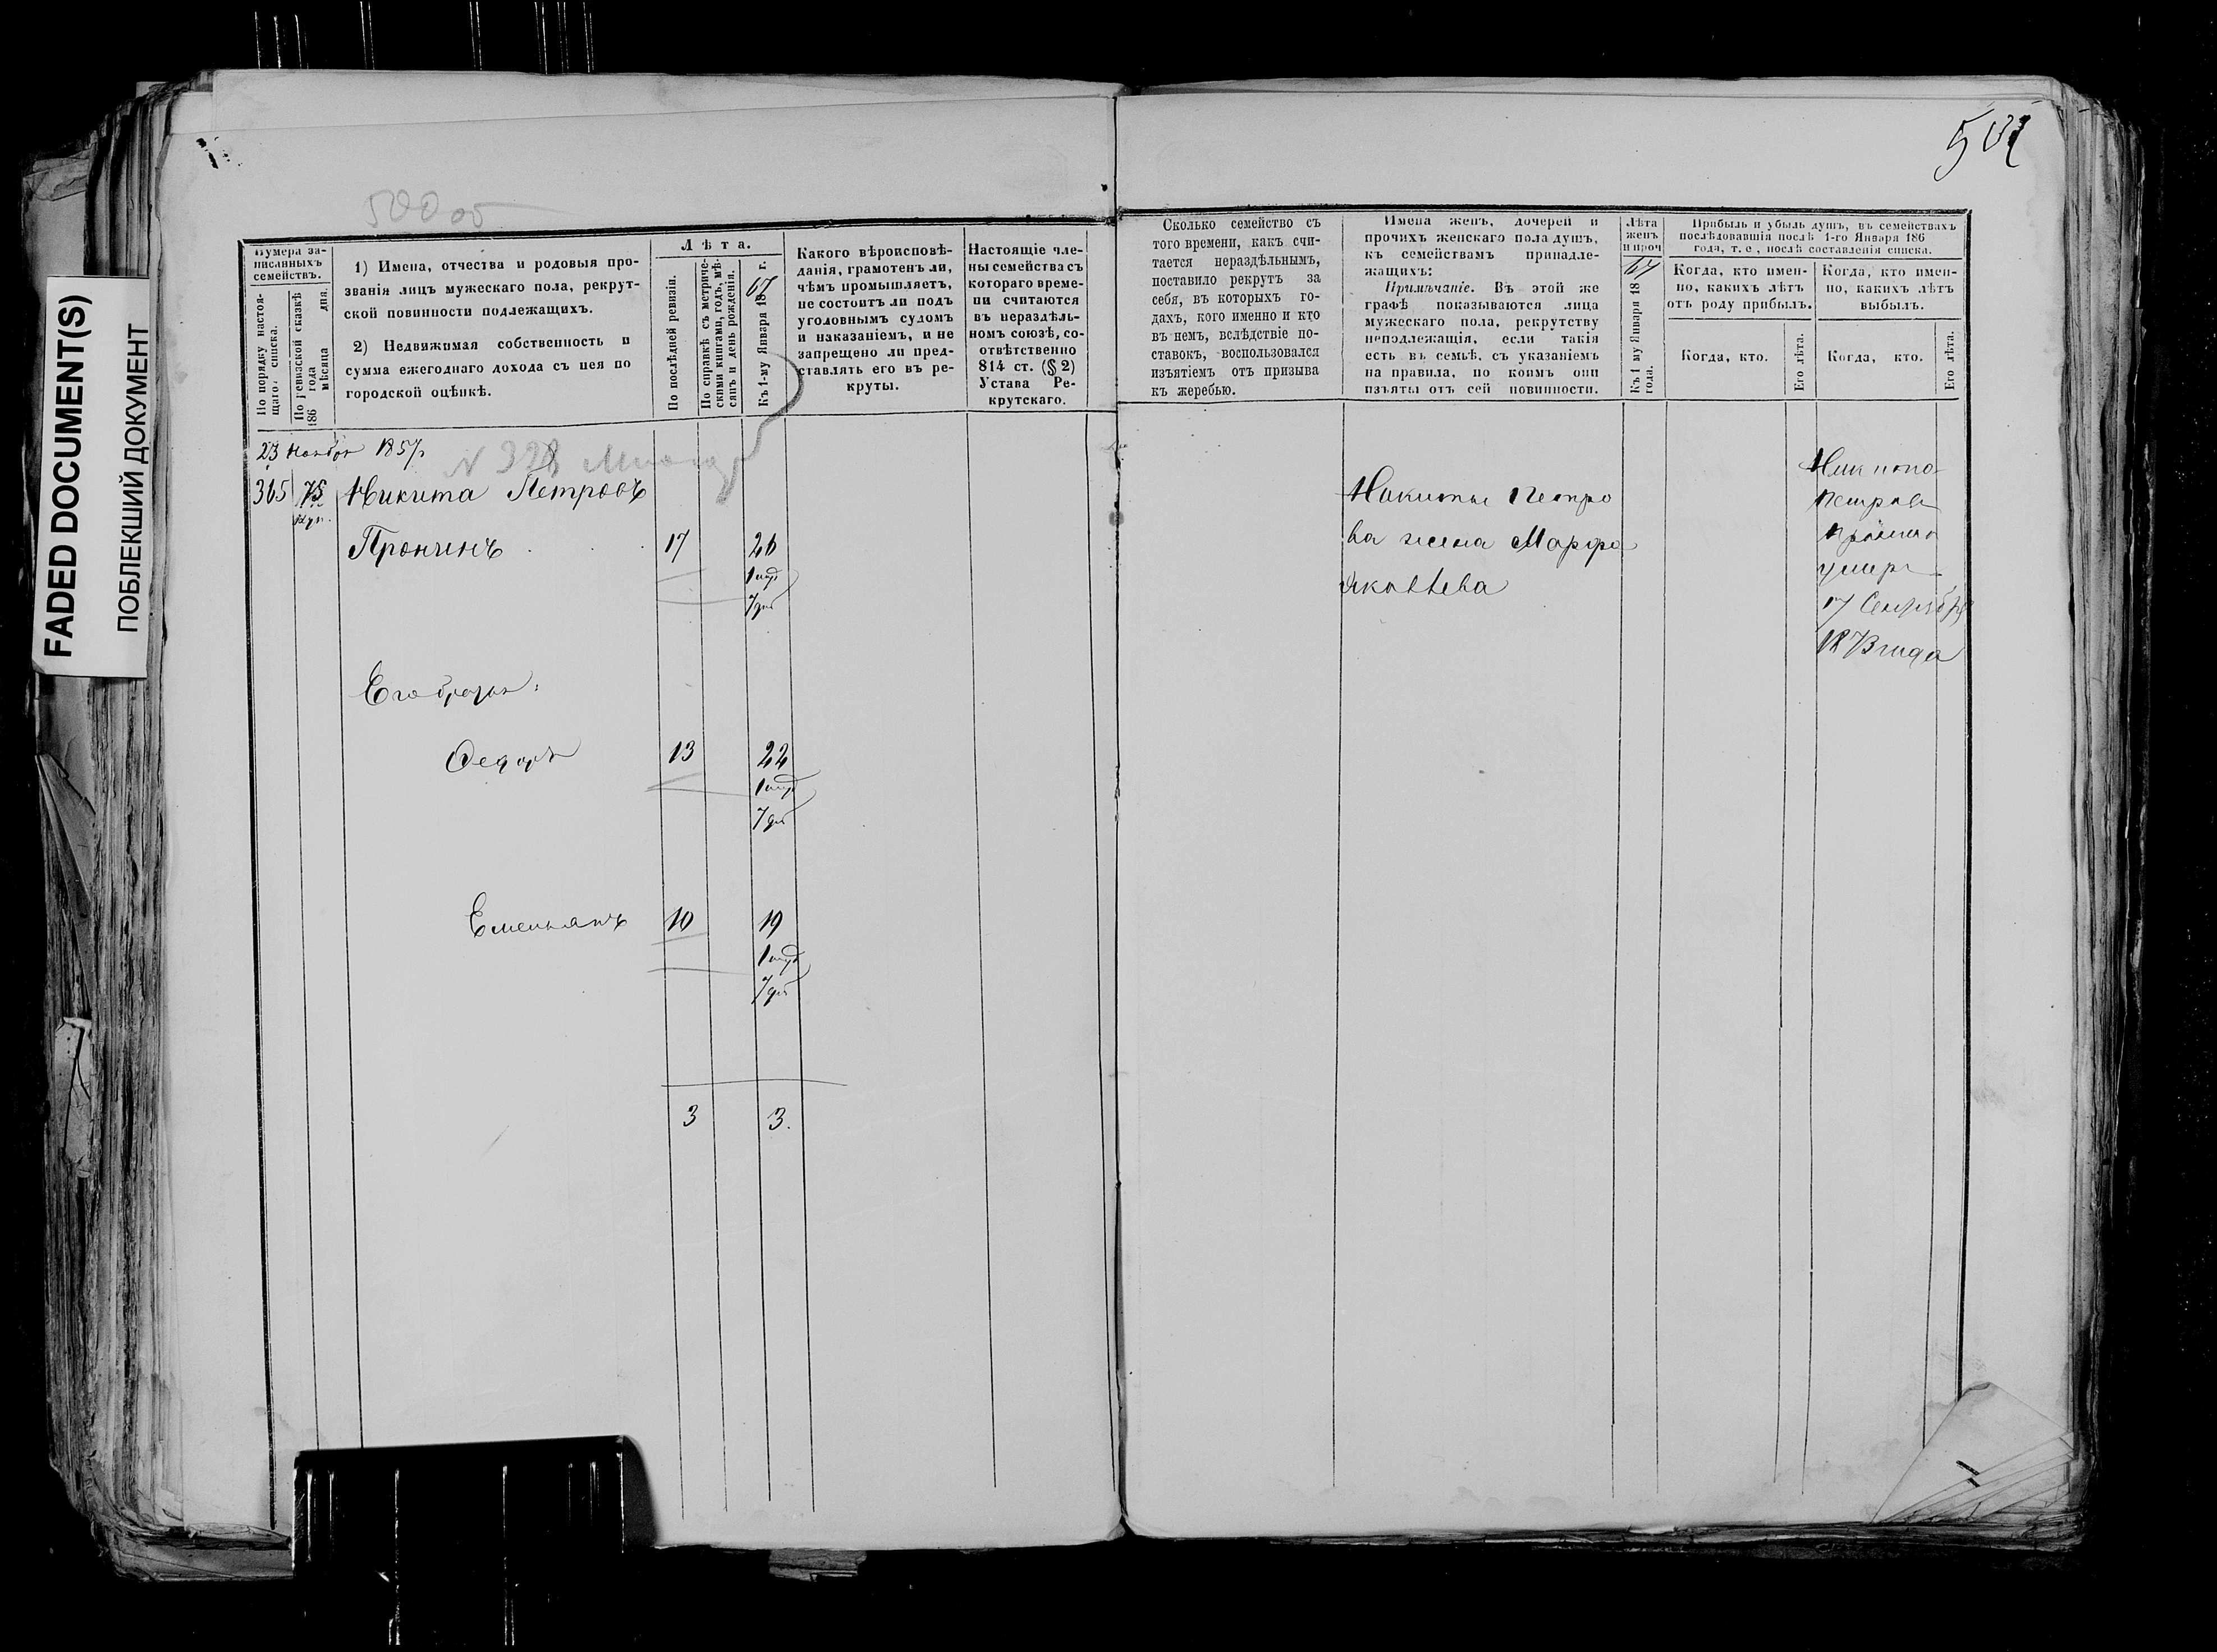 FADED DOCUMENT(S)
ПОБЛЕКШИЙ ДОКУМЕНТ
500 об
Нумера за-
писанныхъ
семействъ.
По порядку настоя-
щаго списка.
По ревизской сказкѣ
186 года
мѣсяца дня.
1) Имена, отчества и родовыя про-
званія лицъ мужескаго пола, рекрут-
ской повинности подлежащихъ.
2) Недвижимая собственность и
сумма ежегоднаго дохода съ нея по
городской оцѣнкѣ.
Лѣта.
По послѣдней ревизіи.
По справкѣ съ метриче-
скими книгами, годъ, мѣ-
сяцъ и день рожденія.
Къ 1-му Января 1867 г.
Какого вѣроисповѣ-
данія, грамотенъ ли,
чѣмъ промышляетъ,
не состоитъ ли подъ
уголовнымъ судомъ
и наказаніемъ, и не
запрещено ли пред-
ставлять его въ ре-
круты.
Настоящіе чле-
ны семейства съ
котораго време-
ни считаются
въ нераздѣль-
номъ союзѣ, со-
отвѣтственно
814 ст. (§ 2)
Устава Ре-
крутскаго.
23 Ноября 1857
N 328
365 75 Никита Петровъ
куп.
Пронинъ 17 26
1 мѣс
7 дн
Его братья:
Ѳедоръ 13 22
1 мѣс
7 дн
Емельянъ 10 19
1 мѣс
7 дн
3 3.
Сколько семейство съ
того времени, какъ счи-
тается нераздѣльнымъ,
поставило рекрутъ за
себя, въ которыхъ го-
дахъ, кого именно и кто
въ немъ, вслѣдствіе по-
ставокъ, воспользовался
изъятіемъ отъ призыва
къ жеребью.
Имена женъ, дочерей и
прочихъ женскаго пола душъ,
къ семействамъ принадле-
жащихъ:
Примѣчаніе. Въ этой же
графѣ показываются лица
мужескаго пола, рекрутству
неподлежащія, если такія
есть въ семьѣ, съ указаніемъ
на правила, по коимъ они
изъяты отъ сей повинности.
Лѣта
женъ
и проч
Къ 1 му Января 1867
года.
Прибыль и убыль душъ, въ семействахъ
послѣдовавшія послѣ 1-го Января 186
года, т. е., послѣ составленія списка.
Когда, кто имен-
но, какихъ лѣтъ
отъ роду прибылъ.
Когда, кто.
Его лѣта.
Когда, кто имен-
но, какихъ лѣтъ
выбылъ.
Когда, кто.
Его лѣта.
Никиты Петро
ва жена Марфа
Яковлева
Никита
Петровъ
Пронинъ
умеръ
17 Сентября
1873 года